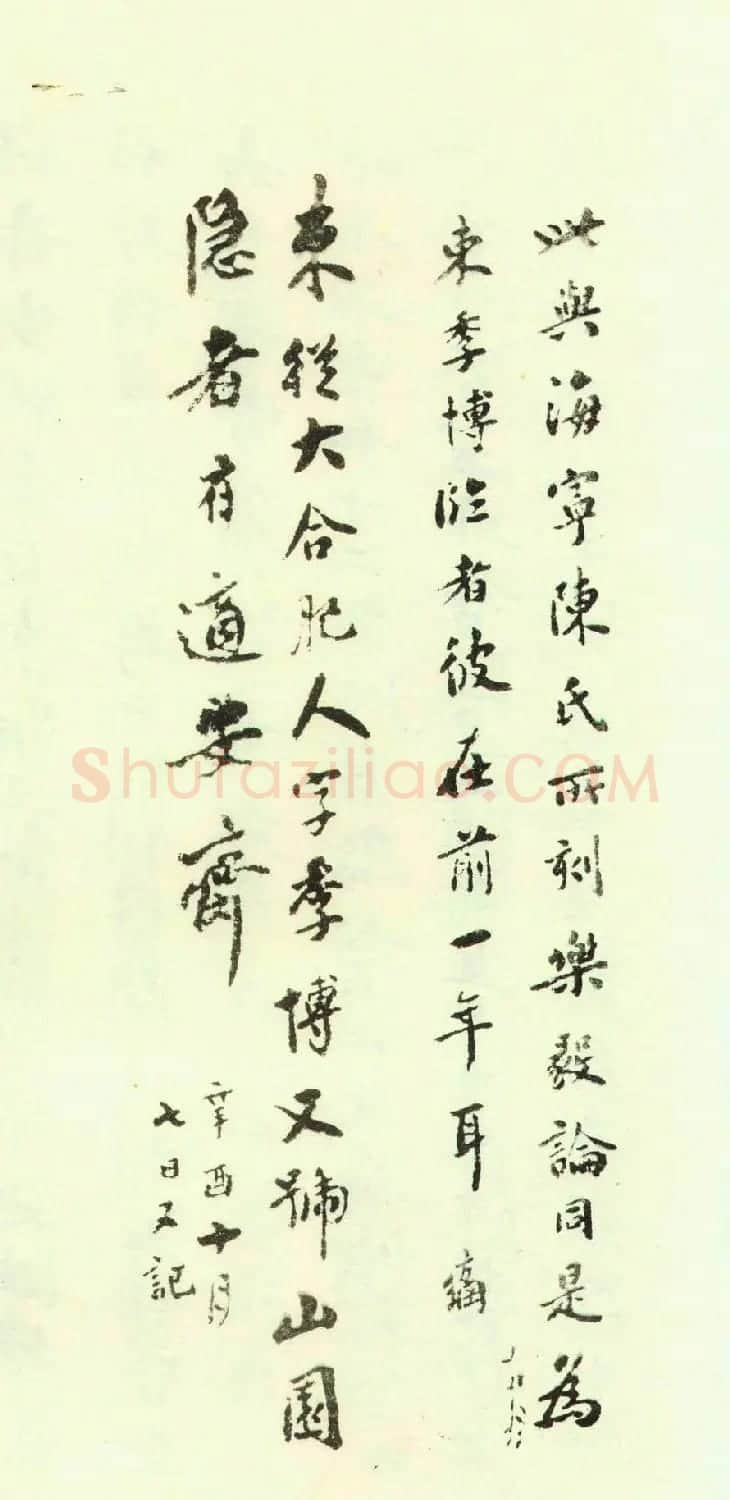 此與海寧陳氏所刻樂毅論同是為
束季博臨者彼在前一年耳
束從大合肥人字季博又號山園
隐者有適安齋
辛酉十月
七日又記
Shufaziliao.COM